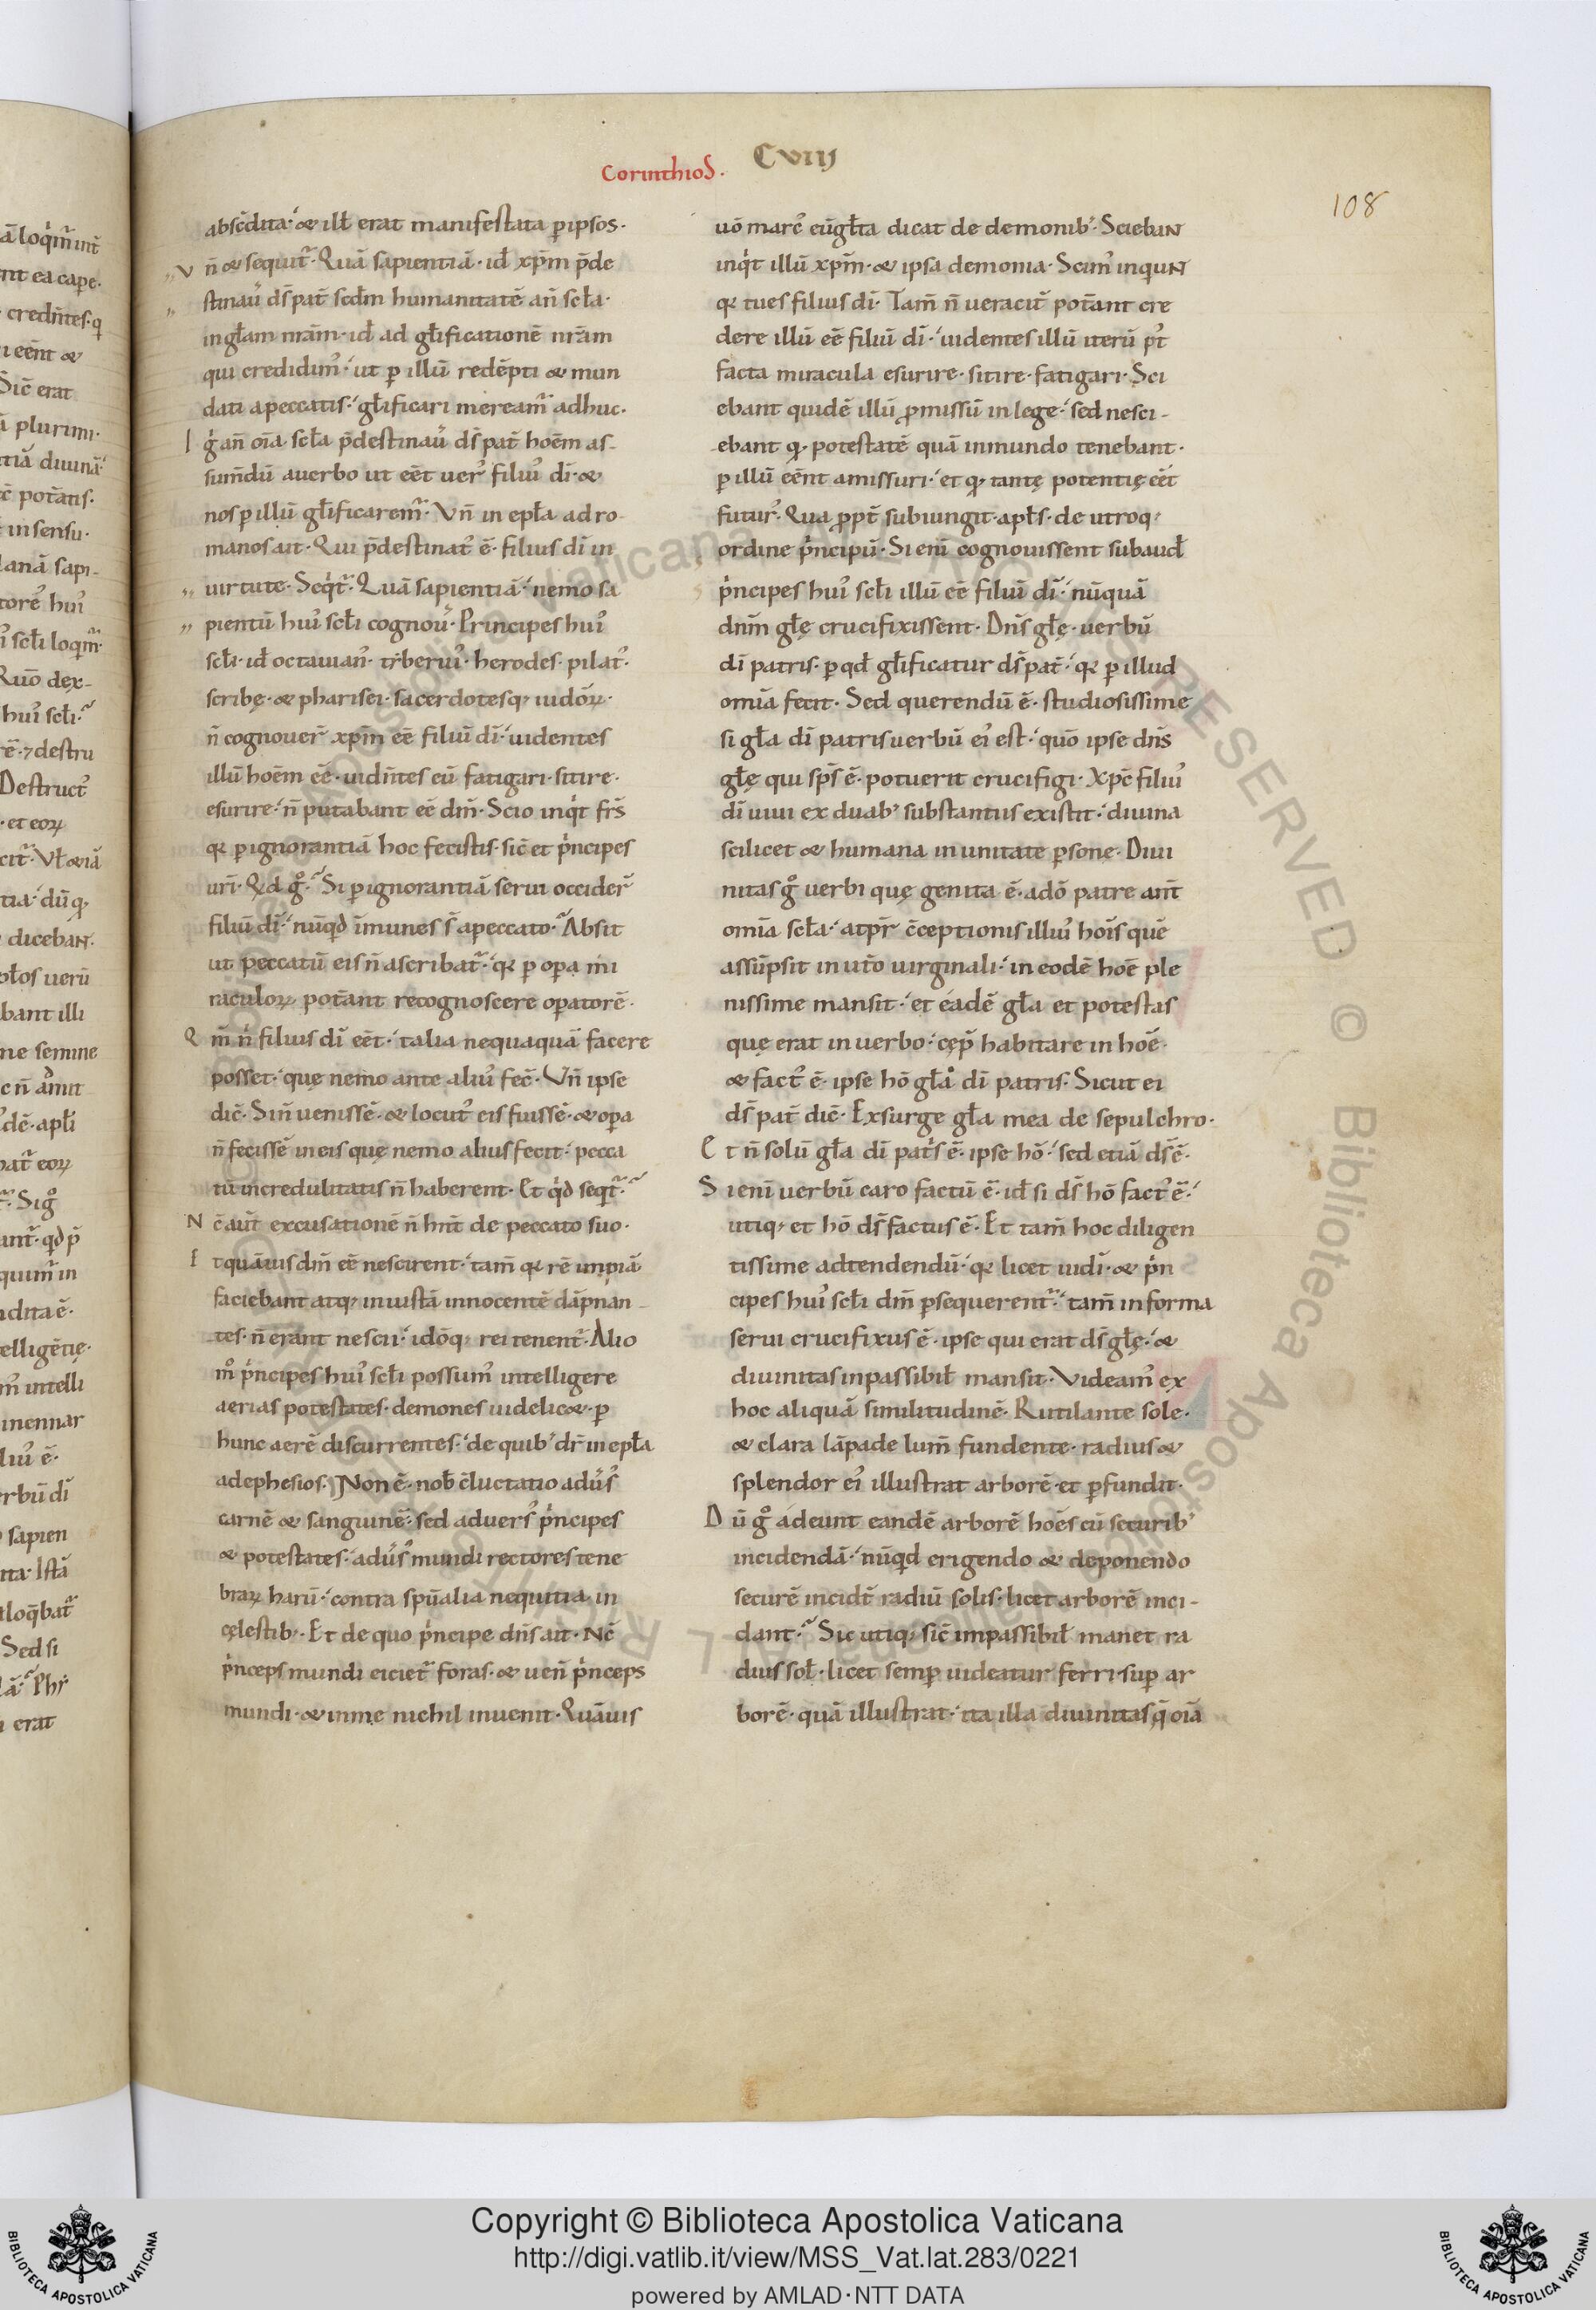 Corinthios.
CVIII
108
abscdita· & illł erat manifestata p ipsos·
Vn̄ & sequit᷑· Quā sapientiā· id xp̄m p̄de
stinau᷑ ds̄ pat̄ scdm humanitatē an̄ scła·
in głam nrām· id ad głificationē nrām
qui credidim᷒· ut p illū redēpti & mun
dati a peccatis· głificari meream᷑ adhuc·
I g̊ an̄ oīa scła p̄destinau᷑ ds̄ pat̄ hoēm as-
sum̄dū a uerbo ut eēt uer᷒ filiu᷒ dī· &
nos p illū głificarem᷑· Vn̄ in epła ad ro-
manos ait· Qui p̄destinat᷒ ē· filius dī in
uirtute· Seqit᷑· Quā sapientiā· nemo sa
pientū hui᷒ scłi cognou᷑· Principes hui᷒
scłi· id octauian᷒· tyberiu᷒· herodes· pilat᷒·
scribę· & pharisei· sacerdotesq; iudōꝝ·
n̄ cognouer̄ xp̄m eē filiū dī· uidentes
illū hoēm eē· uidn̄tes eū fatigari· sitire·
esurire· n̄ putabant eē dm̄· Scio inqit frs̄
qꝛ p ignorantiā hoc fecistis· sic̄ et pincipes
urī· Qd g̊· Si p ignorantiā serui occider̄
filiū dī· nūqd īmunes s̄ a peccato· Absit
ut peccatū eis n̄ ascribat᷑· qꝛ p opa mi
raculoꝝ pot̄ant recognoscere opatorē·
Qm̄ ni filius dī eēt· talia nequaquā facere
posset· quę nemo ante aliu᷒ fec̄· Vn̄ ipse
dic̄· Si n̄ uenissē· & locut᷒ eis fuissē· & opa
n̄ fecissē in eis quę nemo alius fecit· pecca
tū incredulitatis n̄ haberent· Et qd seqt᷑·
Nc̄ aut̄ excusationē n̄ hnt̄ de peccato suo·
Et quāuis dm̄ eē nescirent· tam̄ qꝛ rē impiā
faciebant atq; iniustā innocentē dāpnan-
tes· n̄ erant nescii· idōq; rei tenent᷑· Alio
m̊ pincipes hui᷒ scłi possum᷒ intelligere
aerias potestates· demones uidelic&· p
hunc aerē discurrentes· de quib; dr̄ in epła
ad ephesios· Non ē· nob̄ c̄luctatio adus᷒
carnē & sanguinē· sed aduers᷒ pincipes
& potestates· adus᷒ mundi rectores tene
braꝝ harū· contra spūalia nequitia in
cęlestib;· Et de quo pincipe dn̄s ait· Nc̄
pinceps mundi eiciet᷑ foras· & uen̄ pinceps
mundi· & in me nichil inuenit· Quāuis
uō marc᷒ eūgłta dicat de demonib;· Sciebant
inqit illū xp̄m· & ipsa demonia· Scim᷒ inquiunt
qꝛ tu es filius dī· Tam̄ n̄ ueracit̄ pot̄ant cre
dere illū eē filiū dī· uidentes illū iterū pt᷒
facta miracula esurire· sitire· fatigari· Sci
ebant quidē illū pmissū in lege· sed nesci-
ebant qꝫ potestatē quā in mundo tenebant·
p illū eēnt amissuri· et qꝫ tantę potentię eēt
futur᷒· Quapropt̄ subiungit· apłs· de utroq;
ordine pincipū· Si eni cognouissent subaud
pincipes hui᷒ scłi illū eē filiū dī· nūquā
dnm̄ głę crucifixissent· Dn̄s głę· uerbū
dī patris· p qd głificatur ds̄ pat̄· qꝛ p illud
omīa fecit· Sed querendū ē· studiosissime
si gła dī patris uerbū ei᷒ est· quō ipse dn̄s
głę qui sps̄ ē· potuerit crucifigi· Xpc̄ filiu᷒
dī uiui ex duab; substantiis existit· diuina
scilicet & humana in unitate psone· Diui
nitas g̊ uerbi quę genita ē· a dō patre ant̄
omīa scła· a tpr̄ c̄ceptionis illiu᷒ hoīs quē
assūpsit in utō uirginali· in eodē hoē ple
nissime mansit· et eadē gła et potestas
quę erat in uerbo· cęp᷑ habitare in hoē·
& fact᷒ ē· ipse hō gła dī patris· Sicut ei
ds̄ pat̄ dic̄· Exsurge gła mea de sepulchro·
Et n̄ solū gła dī patis ē· ipse hō· sed etiā ds̄ ē·
Si eni uerbū caro factū ē· id si ds̄ hō fact᷒ ē·
utiq; et hō ds̄ factus ē· Et tam̄ hoc diligen
tissime adtendendū· qꝛ licet iudī· & pin
cipes hui᷒ scłi dm̄ psequerent᷑· tam̄ in forma
serui crucifixus ē· ipse qui erat ds̄ głę· &
diuinitas inpassibił mansit· Videam᷒ ex
hoc aliquā similitudinē· Rutilante sole·
& clara lāpade lum̄ fundente· radius &
splendor ei᷒ illustrat arborē· et pfundit·
Dū g̊ adeunt eandē arborē hoēs cū securib;
incidendā· nūqd erigendo & deponendo
securē incidt̄ radiū solis· licet arborē inci-
dant· Sic utiq; sic̄ impassibił manet ra
dius soł· licet semp uideatur ferri· sup ar
borē· quā illustrat· ita illa diuinitas q̄ oīa
Copyright © Biblioteca Apostolica Vaticana
http://digi.vatlib.it/view/MSS_Vat.lat.283/0221
powered by AMLAD·NTT DATA